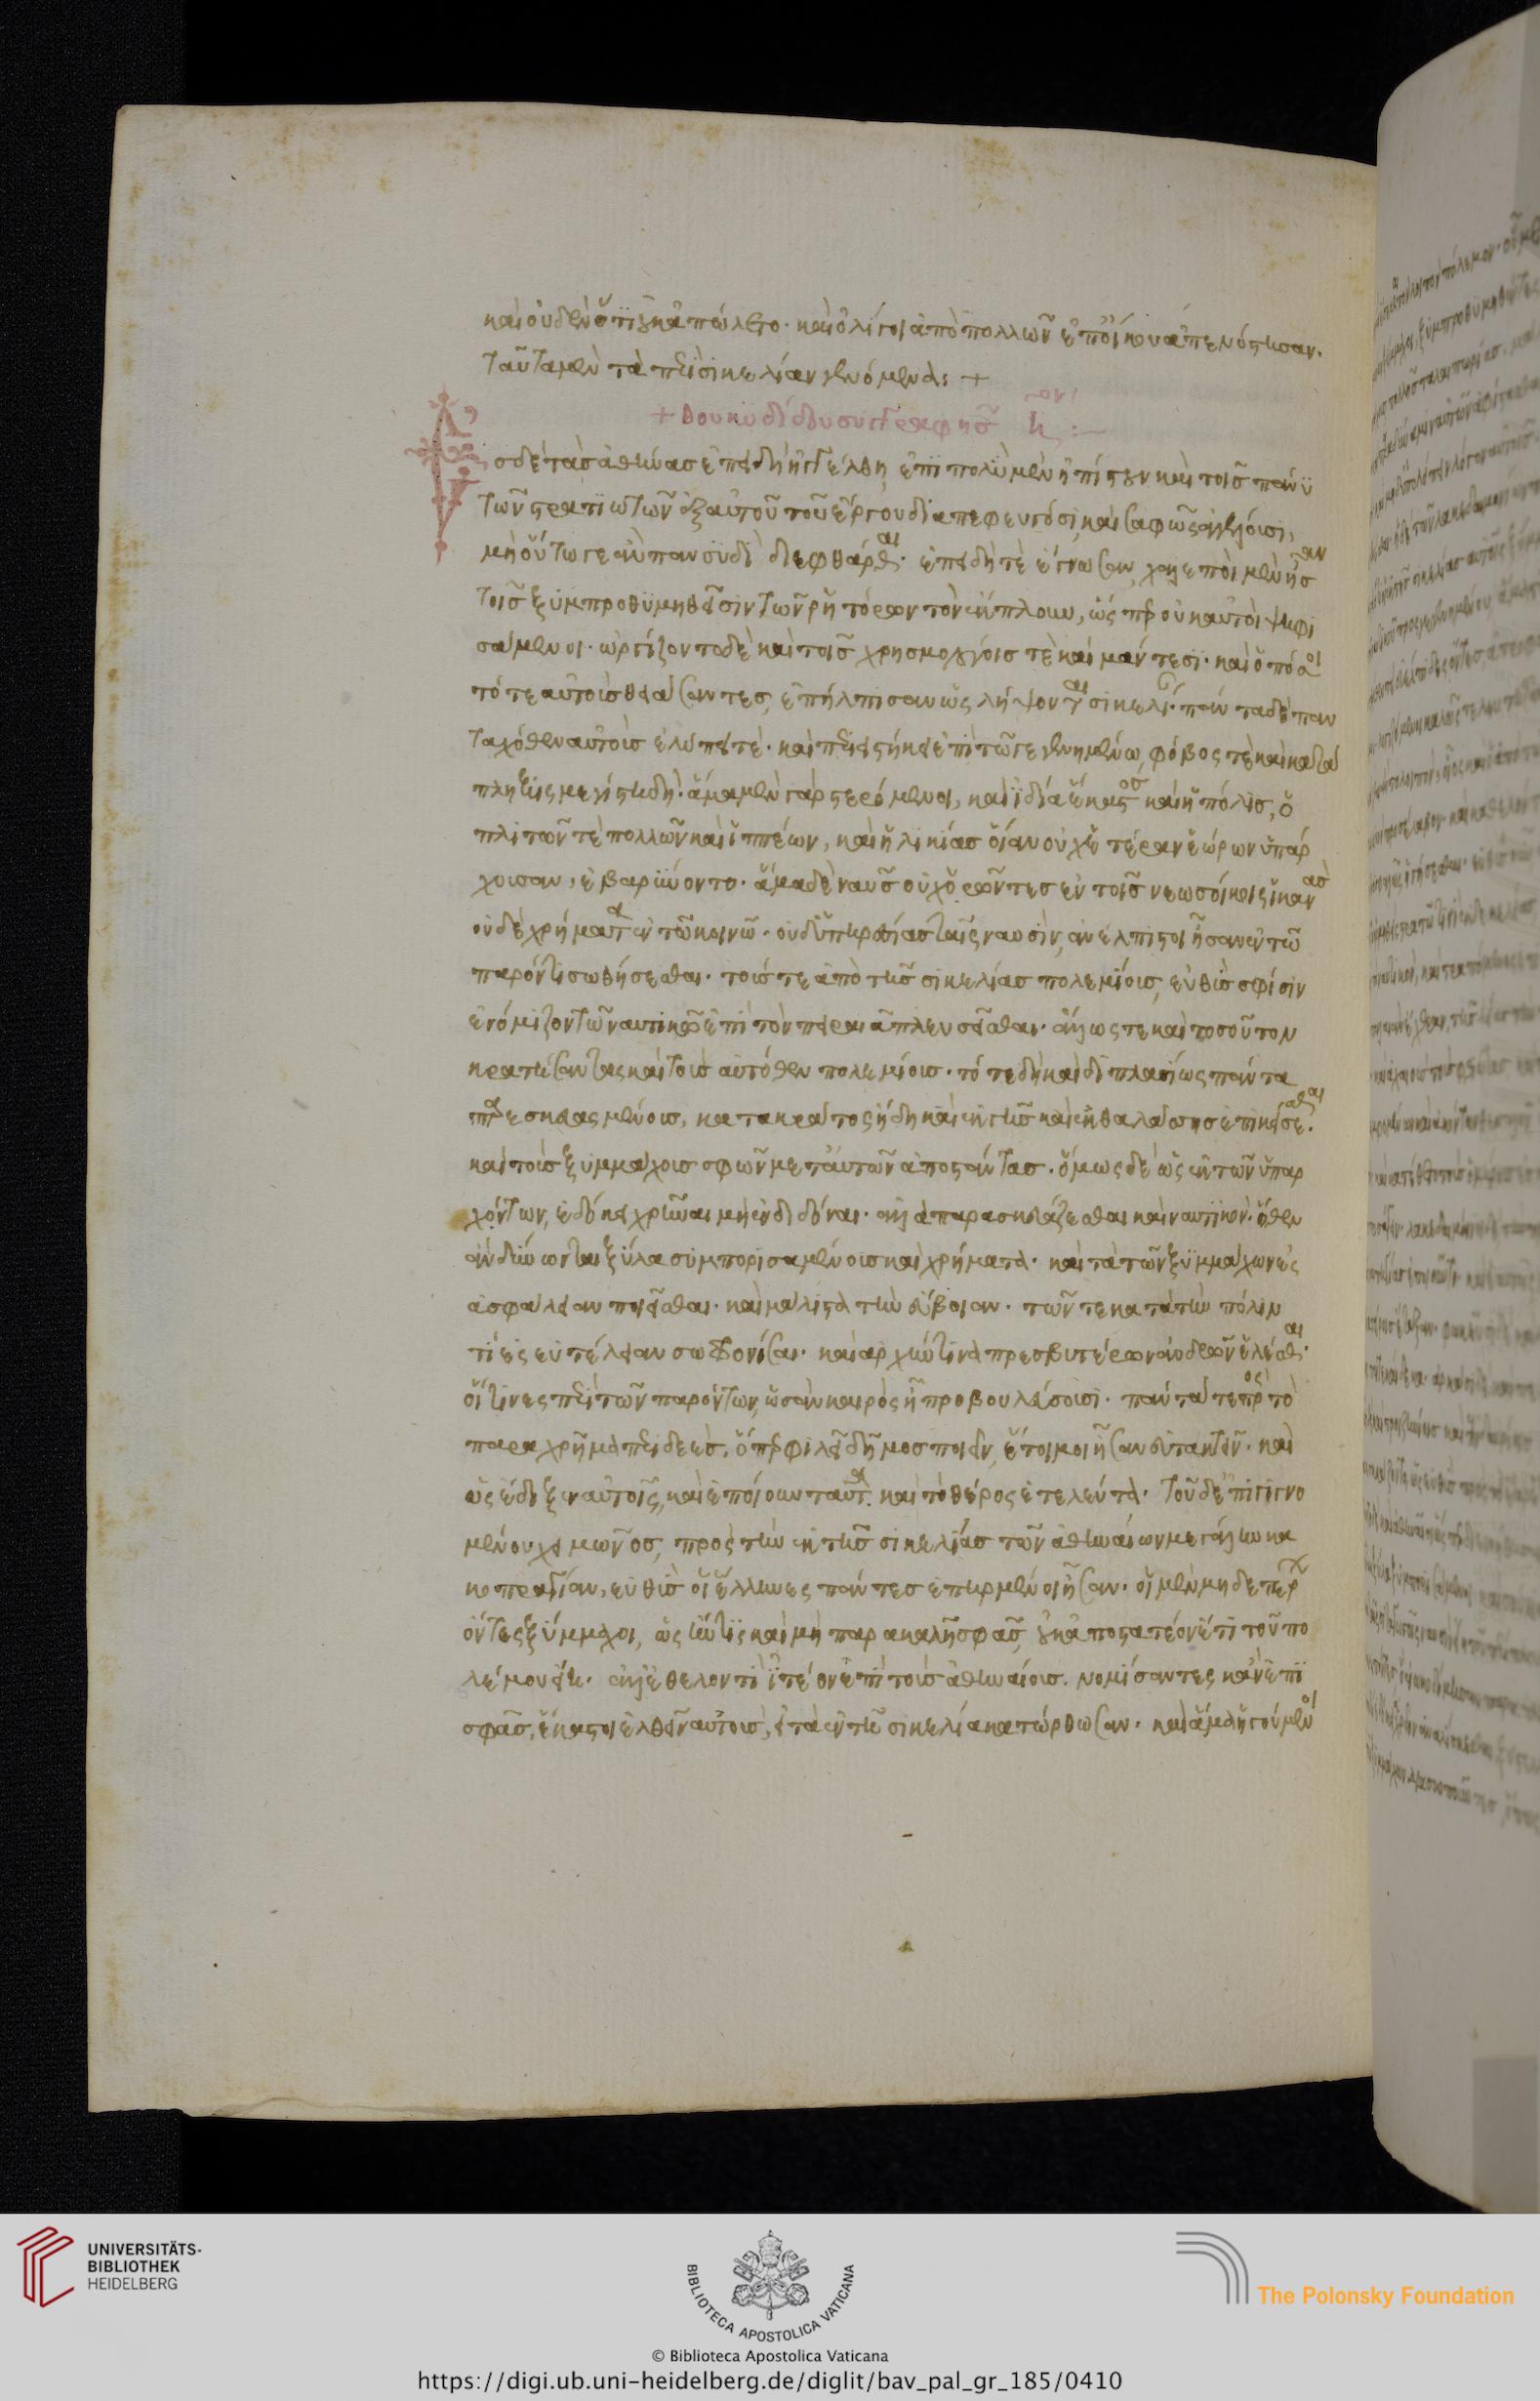 καὶ οὐδὲν ὅτι οὐκ ἀπώλετο· καὶ ὀλίγοι ἀπὸ πολλῶν ἐπ' οἴκου ἀπενόστησαν·
ταῦτα μὲν τὰ περὶ σικελίαν γενόμενα: +
+ θουκυδίδου συγγραφῆς
ἐς δὲ τὰς ἀθήνας ἐπειδὴ ἠγγέλθη, ἐπὶ πολὺ μὲν ἠπίστουν καὶ τοῖς πάνυ
τῶν στρατιωτῶν ἐξ αὐτοῦ τοῦ ἔργου διαπεφευγόσι, καὶ σαφῶς ἀγγέλλουσι,
μὴ οὕτω γε ἂν πανσυδὶ διεφθάρθαι· ἐπειδή τε ἔγνωσαν, χαλεποὶ μὲν ἦσαν
τοῖς ξυμπροθυμηθεῖσιν τῶν ῥητόρων τὸν ἔκπλουν, ὥσπερ οὐκ αὐτοὶ ψηφι
σάμενοι· ὠργίζοντο δὲ καὶ τοῖς χρησμολόγοις τε καὶ μάντεσι· καὶ ὁπόσοι
τότε αὐτοὺς θειάσαντες, ἐπήλπισαν ὡς λήψονται σικελίαν· πάντα δὲ παν
ταχόθεν αὐτοὺς ἐλύπει τέ· καὶ περιειστήκει ἐπὶ τῶ γεγενημένω, φόβος τὲ καὶ κατά
πληξις μεγίστη δή· ἅμα μὲν γὰρ στερόμενοι, καὶ ἰδία ἕκαστος καὶ ἡ πόλις, ὁ
πλιτῶν τὲ πολλῶν καὶ ἱππέων, καὶ ἡλικίας οἵαν οὐχ ἑτέραν ἑώρων ὑπάρ
χουσαν, ἐβαρύνοντο· ἅμα δὲ ναῦς οὐχ ὁρῶντες ἐν τοῖς νεωσοίκοις ἱκανὰς
οὐδὲ χρήματα ἐν τῶ κοινῶ· οὐδ' ὑπηρεσίας ταῖς ναυσὶν, ἀνέλπιστοι ἦσαν ἐν τῶ
παρόντι σωθήσεσθαι· τούς τε ἀπὸ τῆς σικελίας πολεμίους, εὐθὺς σφίσιν
ἐνόμιζον τῶ ναυτικῶ ἐπὶ τὸν πειραιᾶ πλευσεῖσθαι· ἄλλως τε καὶ τοσοῦτον
κρατήσαντας καὶ τοὺς αὐτόθεν πολεμίους· τότε δὴ καὶ διπλασίως πάντα
παρεσκευασμένους, κατὰ κράτος ἤδη καὶ ἐκ γῆς καὶ ἐκ θαλάσσης ἐπικείσεσθαι·
καὶ τοὺς ξυμμάχους σφῶν μετ' αὐτῶν ἀποστάντας· ὅμως δὲ ὡς ἐκ τῶν ὑπαρ
χόντων, ἐδόκει χρῆναι μὴ ἐνδιδόναι· ἀλλὰ παρασκευάζεσθαι καὶ ναυτικὸν· ὅθεν
ἂν δύνωνται ξύλα συμπορισαμένους καὶ χρήματα· καὶ τὰ τῶν ξυμμάχων ἐς
ἀσφάλειαν ποιεῖσθαι· καὶ μάλιστα τὴν εὔβοιαν· τῶν τε κατὰ τὴν πόλιν
τὶ ἐς εὐτέλειαν σωφρονίσαι· καὶ ἀρχήν τινα πρεσβυτέρων ἀνδρῶν ἑλέσθαι·
οἵτινες περὶ τῶν παρόντων, ὡς ἂν καιρὸς ἦ προβουλεύσουσι· πάντα τε πρὸς τὸ
παραχρῆμα περιδεὲς, ὅπερ φιλεῖ δῆμος ποιεῖν, ἕτοιμοι ἦσαν εὐτακτεῖν· καὶ
ὡς ἔδοξεν αὐτοῖς, καὶ ἐποίουν ταῦτα· καὶ τὸ θέρος ἐτελεύτα· τοῦ δ' ἐπιγιγνο
μένου χειμῶνος, πρὸς τὴν ἐκ τῆς σικελίας τῶν ἀθηναίων μεγάλην κα
κοπραγίαν, εὐθὺς οἱ ἕλληνες πάντες ἐπηρμένοι ἦσαν· οἱ μὲν μηδετέρων
ὄντες ξύμμαχοι, ὡς ἤν τις καὶ μὴ παρακαλῆ σφᾶς, οὐκ ἀποστατέον ἔτι τοῦ πο
λέμου εἴη· ἀλλ' ἐθελοντὶ ἰτέον ἐπὶ τοὺς ἀθηναίους· νομίσαντες κἂν ἐπὶ
σφᾶς, ἕκαστοι ἐλθεῖν αὐτοὺς, εἰ τὰ ἐν τῆ σικελία κατώρθωσαν· καὶ ἅμα ἡγούμενοι
UNIVERSITÄTS-
BIBLIOTHEK
HEIDELBERG
BIBLIOTECA APOSTOLICA VATICANA
The Polonsky Foundation
© Biblioteca Apostolica Vaticana
https://digi.ub.uni-heidelberg.de/diglit/bav_pal_gr_185/0410